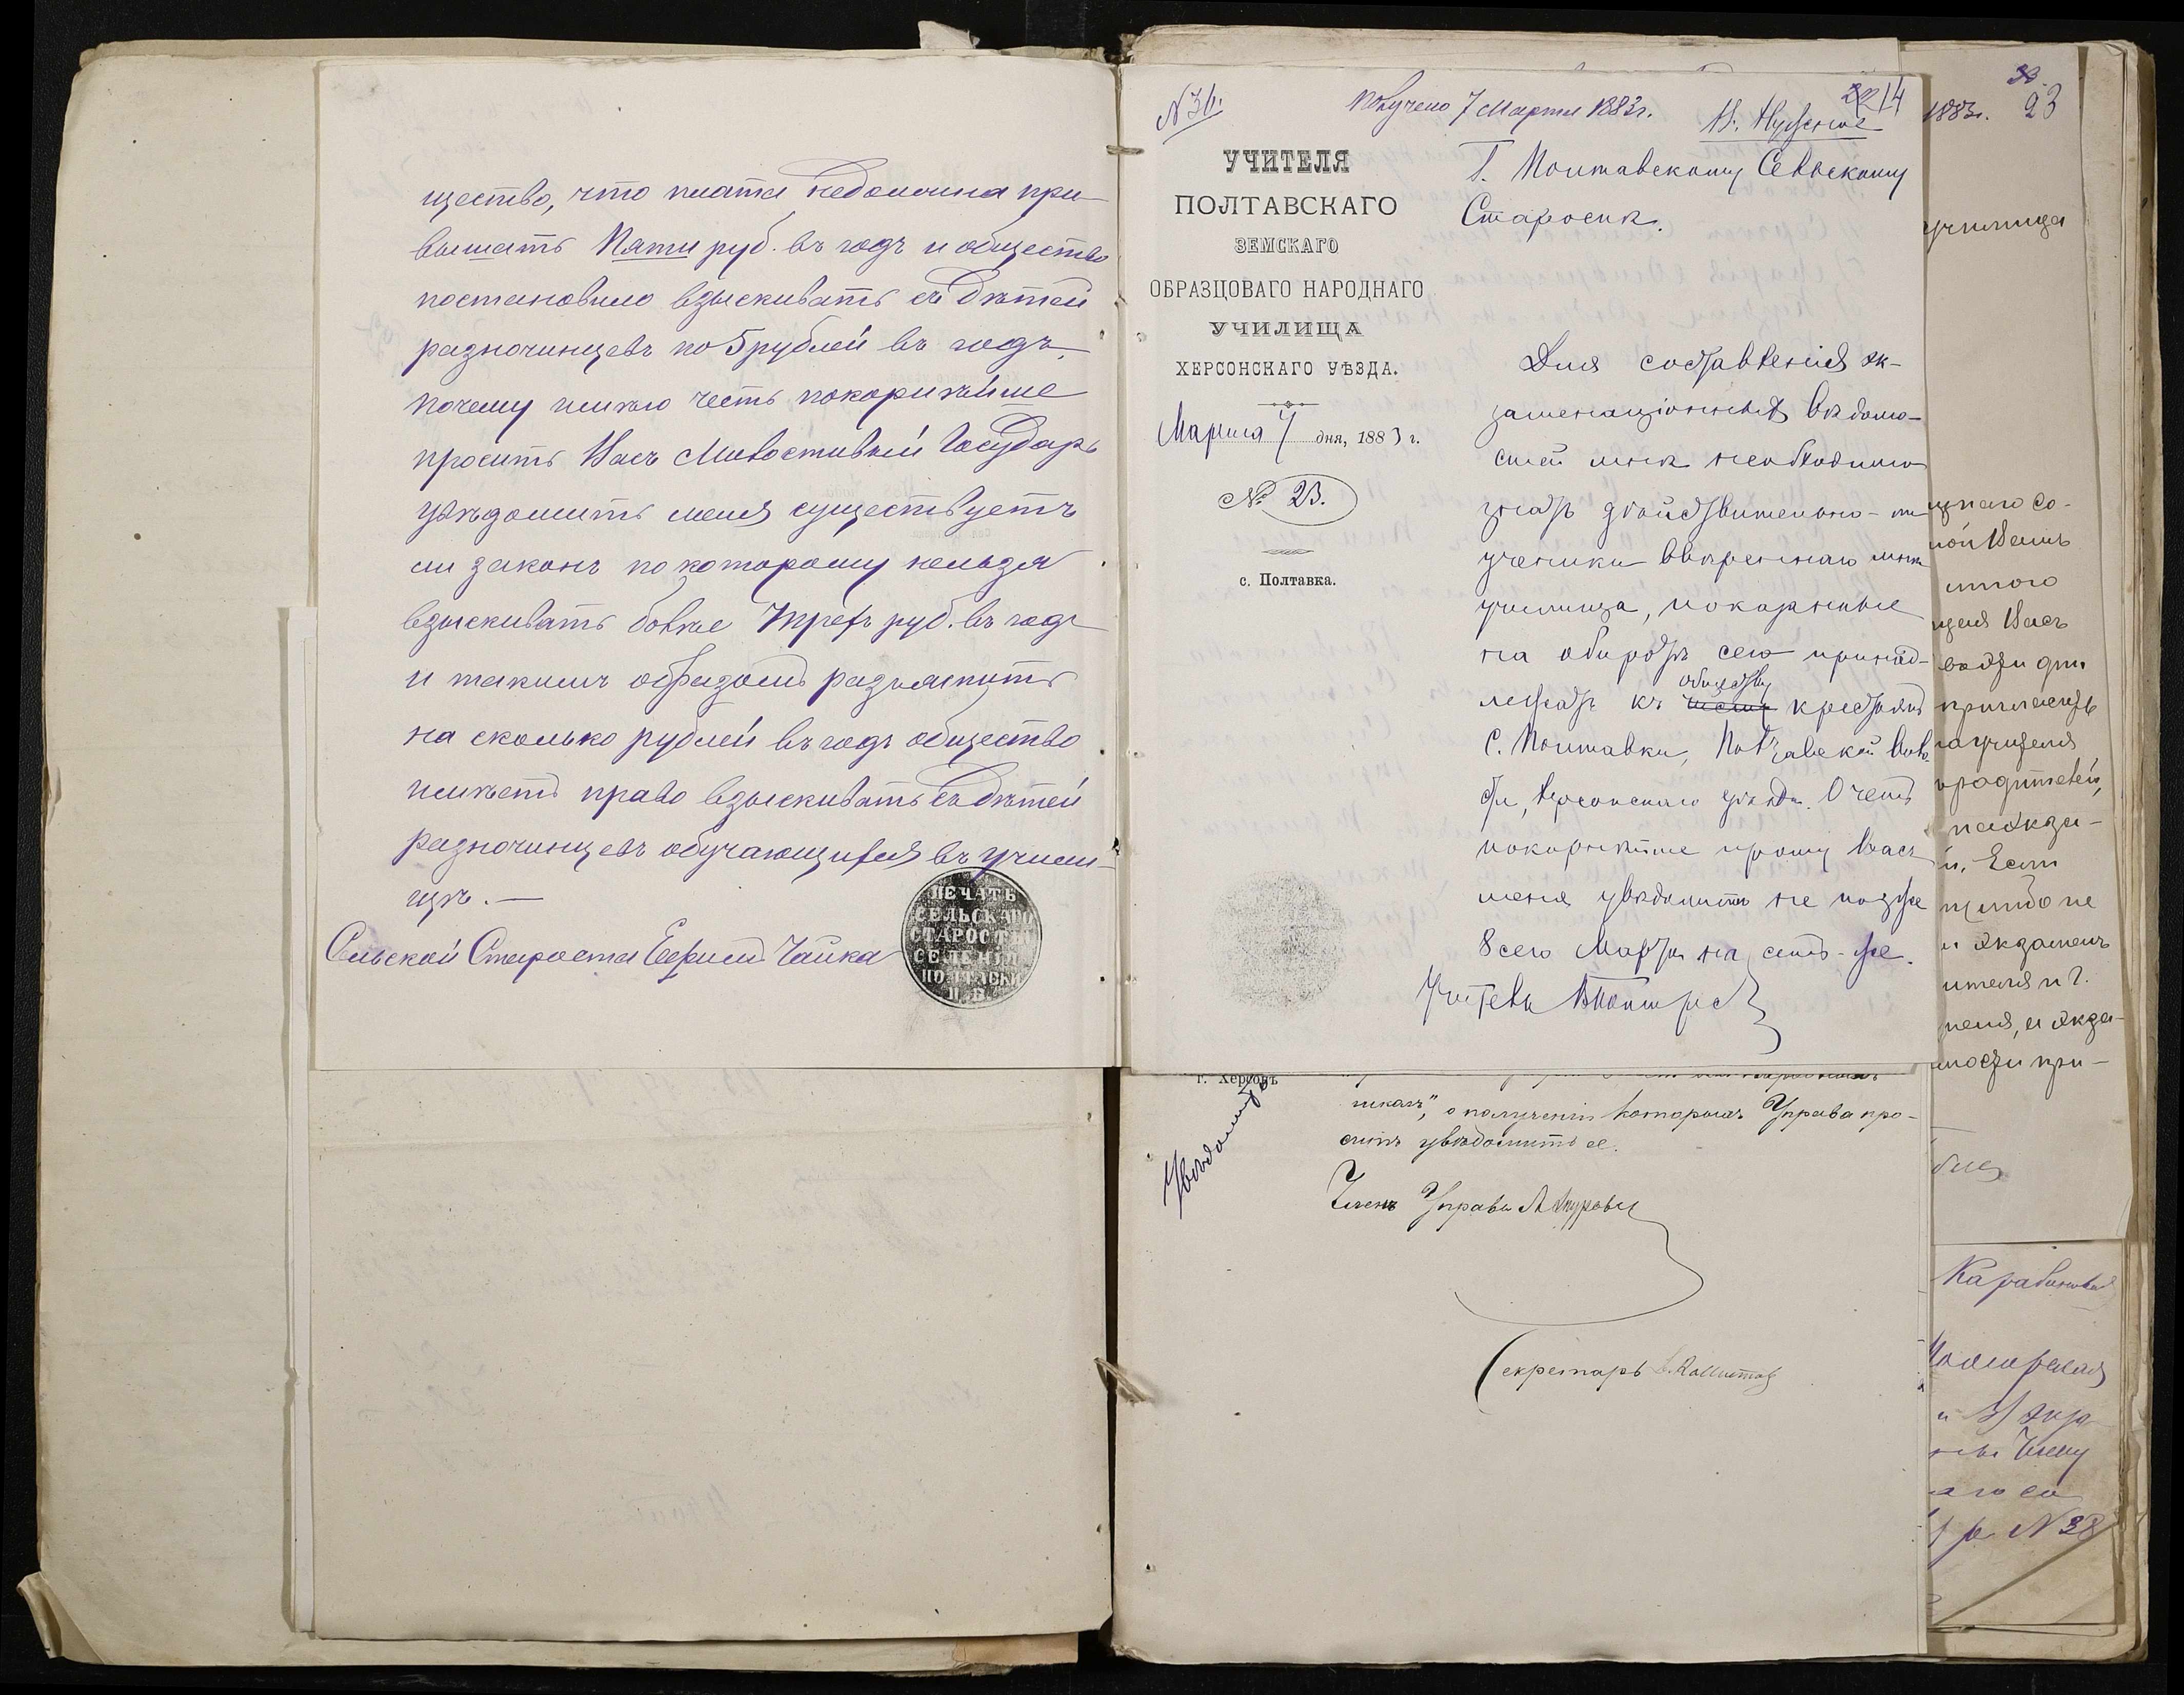 щество, что плата недолжна при-
вышать Пяти руб. въ годъ и общество
постановило взыскивать съ дѣтей
разночинцевъ по 5 рублей въ годъ,
почему имѣю честь покорнѣйше
просить Васъ Милостивый Государь
увѣдомить меня существуетъ
ли законъ по которому нельзя
взыскивать болѣе Трехъ руб. въ годъ
и такимъ образомъ разъяснить
на сколько рублей въ годъ общество
имѣетъ право взыскивать съ дѣтей
разночинцевъ обучающихся въ учили-
щѣ. —
Сельской Староста Ефимъ Чайка
ПЕЧАТЬ
СЕЛЬСКАГО
СТАРОСТЫ
СЕЛЕНІЯ
ПОЛТАВКИ
№ 36.
Получено 7 Марта 1883 г.
14
Къ
УЧИТЕЛЯ
ПОЛТАВСКАГО
ЗЕМСКАГО
ОБРАЗЦОВАГО НАРОДНАГО
УЧИЛИЩА
ХЕРСОНСКАГО УѢЗДА.
Марта 7 дня, 1883 г.
№ 23.
с. Полтавка.
Г. Полтавскому Сельскому
Старостѣ.
Для составленія эк-
заменаціонныхъ вѣдомо-
стей мнѣ необходимо
знать дѣйствительно-ли
ученики ввѣреннаго мнѣ
училища, показанные
на оборотѣ сего принад-
лежатъ къ обществу крестьянъ
С. Полтавки, Полтавской Воло
сти, Херсонскаго уѣзда. О чемъ
покорнѣйше прошу Васъ
меня увѣдомить не позже
8 сего Марта на семъ-же.
Учитель
г. Херсонъ
Увѣдомить
о полученіи которыхъ Управа про-
ситъ увѣдомить ее.
Членъ Управы
Секретарь
1883 г. 23
училища
Васъ
Если
экзаменъ
№ 38